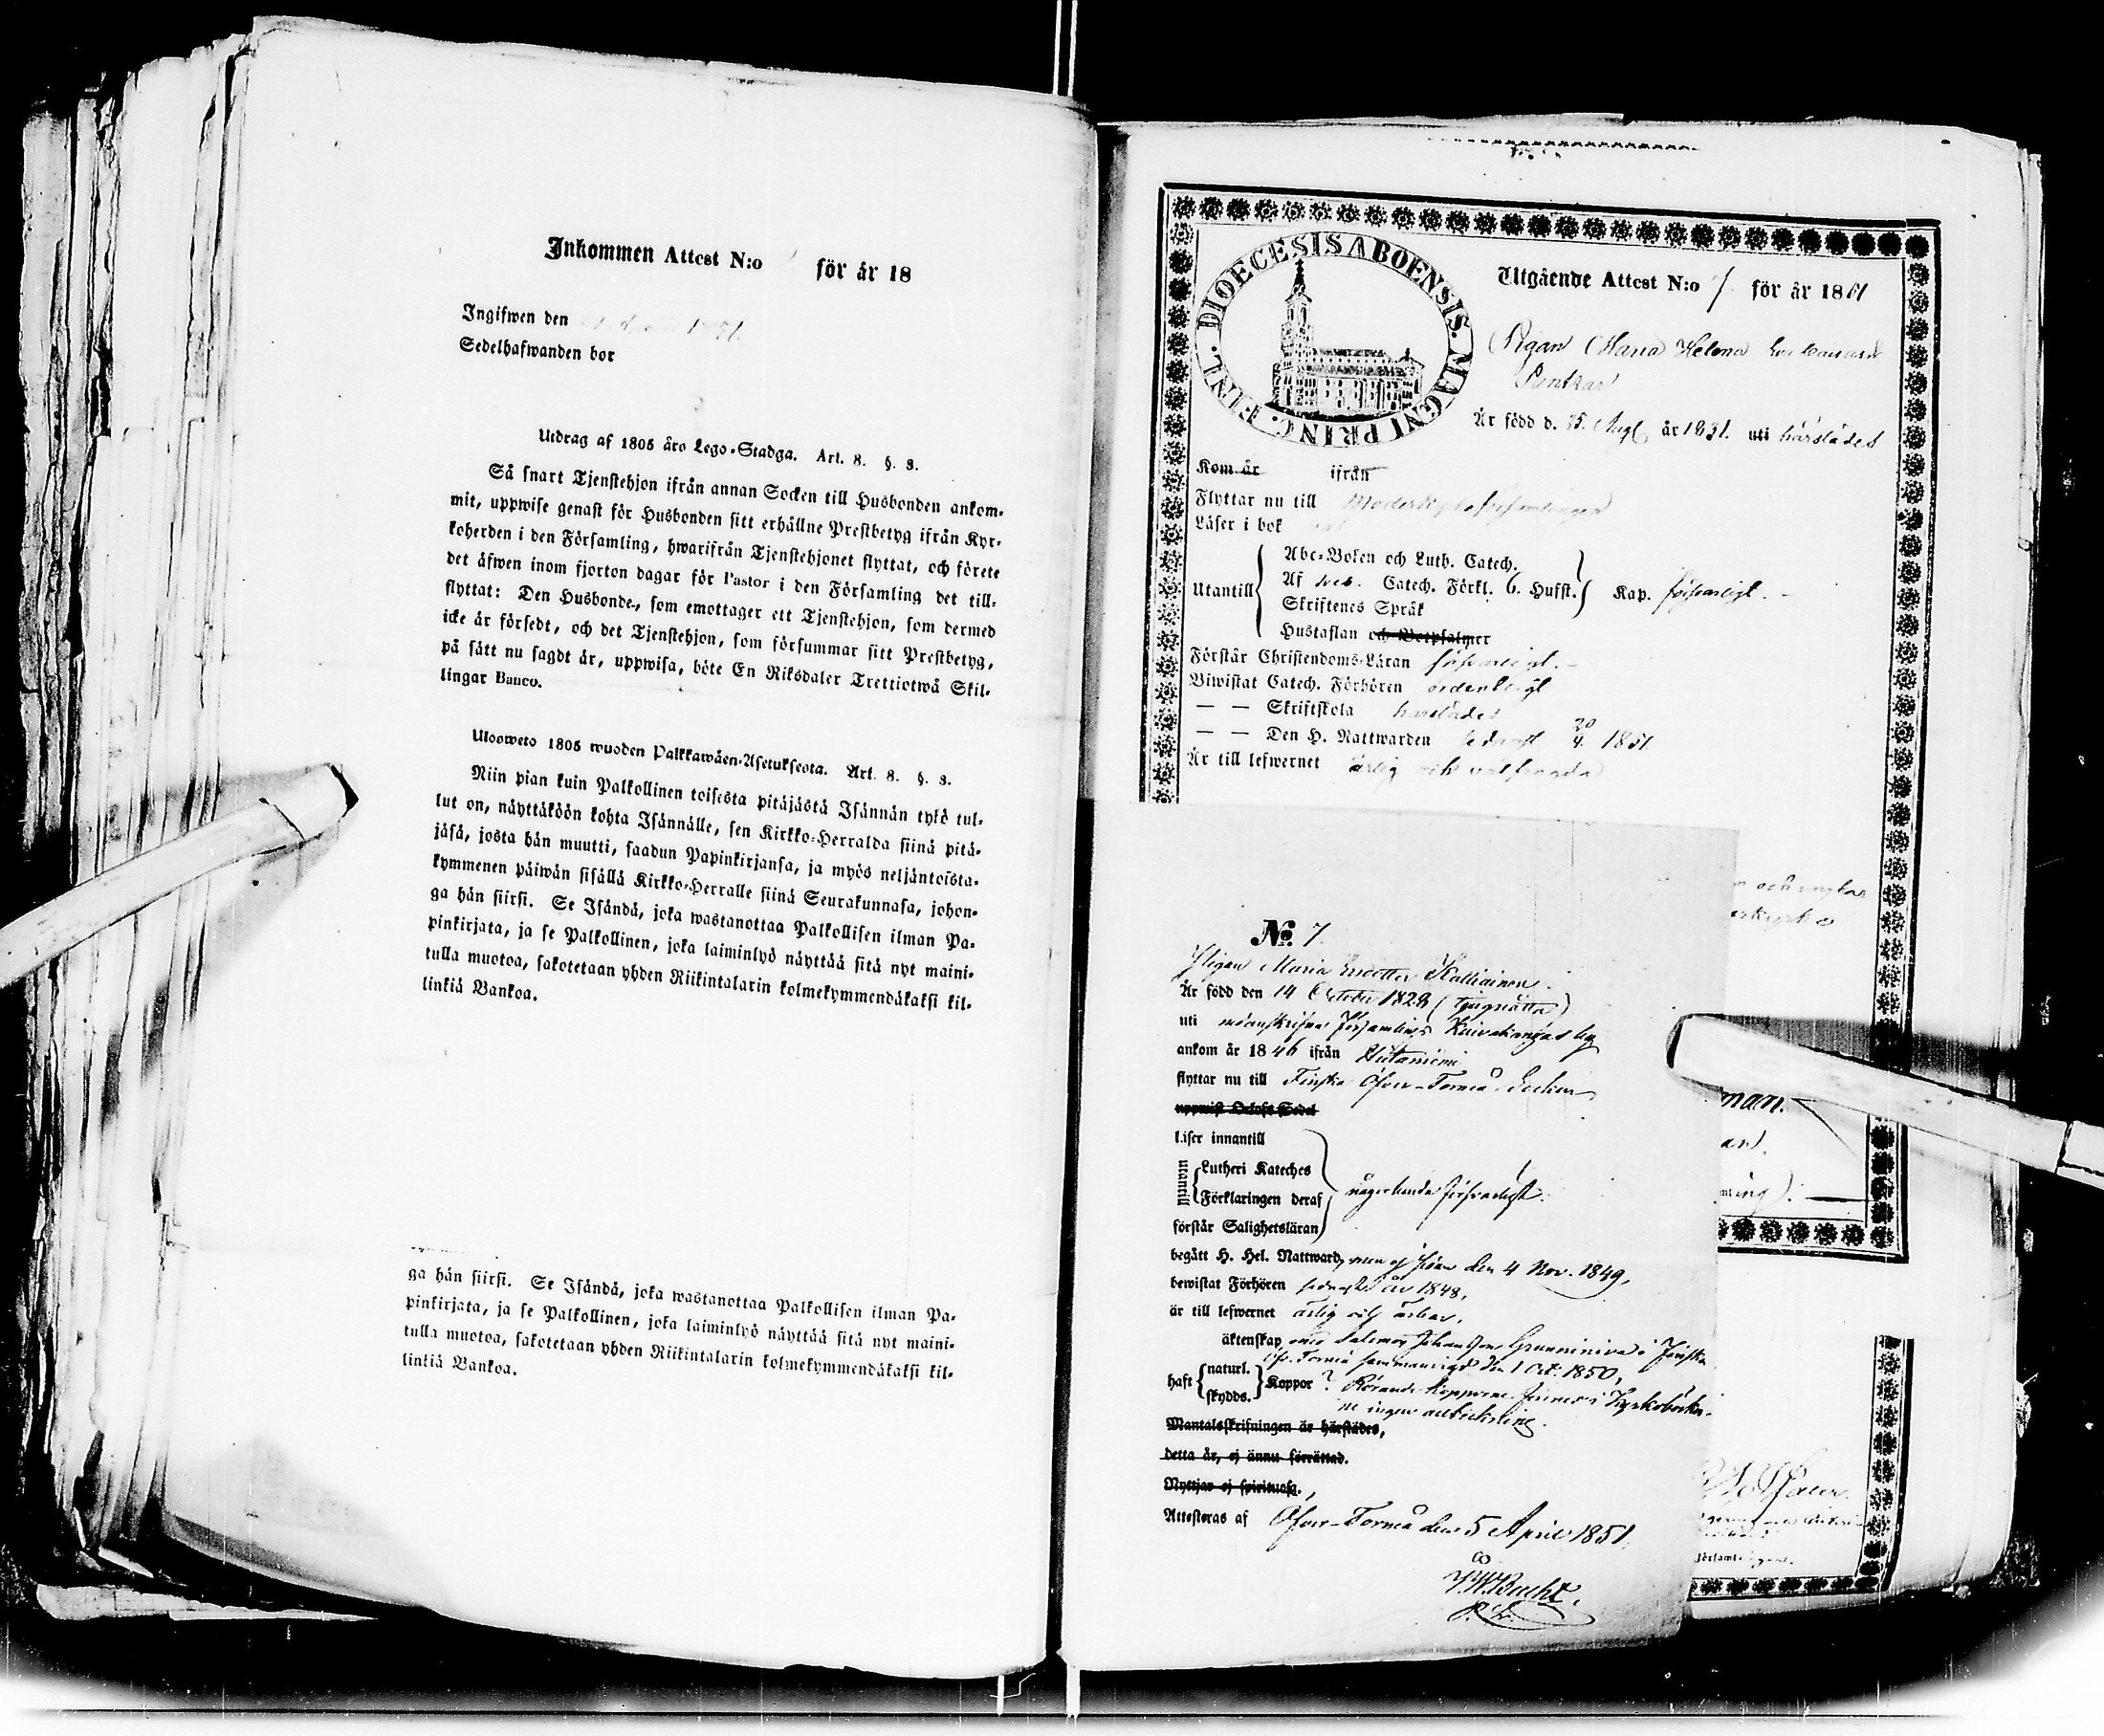 Inkommen Attest N:o för år 18
Ingifwen den
Sedelhafwanden bor
Utdrag af 1805 års Lego-Stadga. Art. 8. §. 3.
Så snart Tjenstehjon ifrån annan Socken till Husbonden ankom-
mit, uppwise genast för Husbonden sitt erhållne Prestbetyg ifrån Kyr-
koherden i den Församling, hwarifrån Tjenstehjonet flyttat, och förete
det äfwen inom fjorton dagar för Pastor i den Församling det till-
flyttat: Den Husbonde, som emottager ett Tjenstehjon, som dermed
icke är försedt, och det Tjenstehjon, som försummar sitt Prestbetyg,
på sätt nu sagdt är, uppwisa, böte En Riksdaler Trettiotwå Skil-
lingar Banco.
Ulosweto 1805 wuoden Palkkawäen-Asetuksesta. Art. 8. §. 3.
Niin pian kuin Palkollinen toisesta pitäjästä Isännän tykö tul-
lut on, näyttäköön kohta Isännälle, sen Kirkko-Herralda siinä pitä-
jäsä, josta hän muutti, saadun Papinkirjansa, ja myös neljäntoista-
kymmenen päiwän sisällä Kirkko-Herralle siinä Seurakunnasa, johon-
ga hän siirsi. Se Isändä, joka wastanottaa Palkollisen ilman Pa-
pinkirjata, ja se Palkollinen, joka laiminlyö näyttää sitä nyt maini-
tulla muotoa, sakotetaan yhden Riikintalarin kolmekymmendäkaksi kil-
linkiä Bankoa.
ga hän siirsi. Se Isändä, joka wastanottaa Palkollisen ilman Pa-
pinkirjata, ja se Palkollinen, joka laiminlyö näyttää sitä nyt maini-
tulla muotoa, sakotetaan yhden Riikintalarin kolmekymmendäkaksi kil-
linkiä Bankoa.
DIOECESIS ABOENSIS. MAGNI PRINC. FINL.
Utgående Attest N:o 7. för år 18
Pigan Maria Helena
Är född d. 25. Aug. år 1831. uti härstädes
Kom år ifrån
Flyttar nu till Moderkyrkoförsamlingen
Läser i bok
Utantill
Abc-Boken och Luth. Catech.
Af Catech. Förkl. 6. Hufst. Kap. försvarligt.
Skriftenes Språk
Hustaflan och Botpsalmer
Förstår Christendoms-Läran försvarligt.
Biwistat Catech. Förhören ordentligt
— — Skriftskola härstädes
— — Den H. Nattwarden sednast 20/4 1851
Är till lefwernet ärlig och välfrägda
man.
No. 7.
Pigan Maria Ersdotter Kalliainen.
Är född den 14 October 1828 (tjugoåtta)
uti Församlings Kuivakangas by
ankom år 1846 ifrån Hietaniemi
flyttar nu till Finska Öfver-Torneå Socken
uppwist Orlofs Sedel
Läser innantill
utantill
Lutheri Kateches
Förklaringen deraf någorlunda försvarligt.
förstår Salighetsläran
begått H. Hel. Nattward, men ej sedan den 4 Nov. 1849,
bewistat Förhören sednast år 1848,
är till lefwernet ärlig och ärbar,
äktenskap med Salomon Johansson i Finska
Öfv. Torneå den 1 Oct. 1850,
haft naturl. skydds. Koppor ? Rörande kopporne finnes i Kyrkoböcker-
ne ingen anteckning.
Mantalsskrifningen är härstädes,
detta år, ej ännu förrättad.
Nyttjar ej spirituosa.
Attesteras af Öfver-Torneå den 5 April 1851.